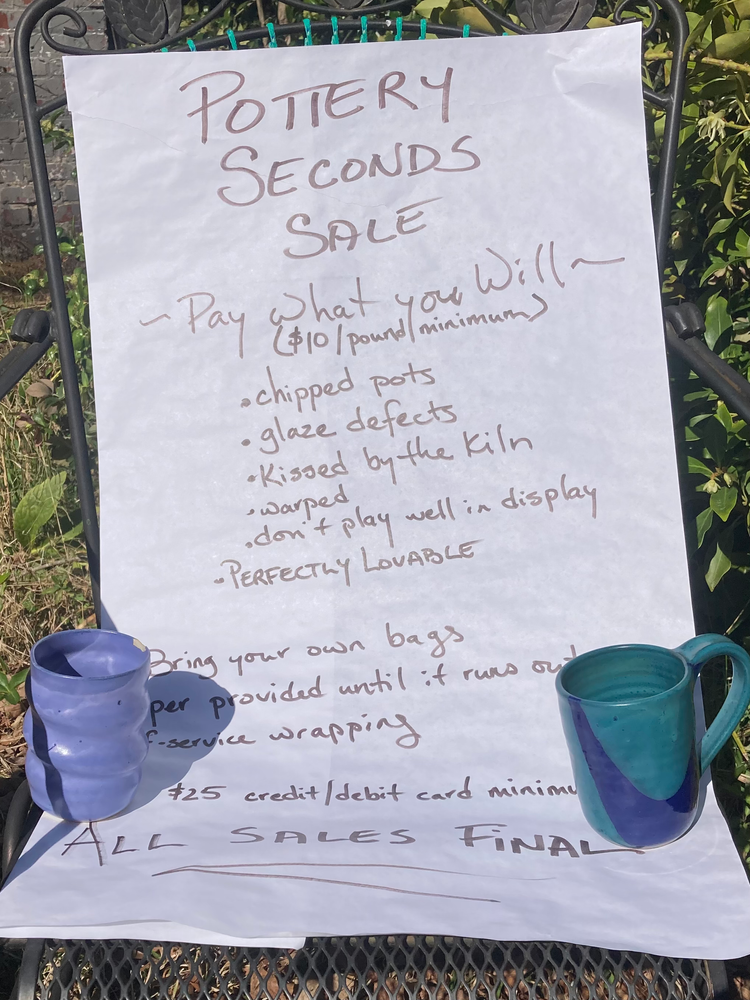 POTTERY
SECONDS
SALE
~ Pay what you Will ~
($10/pound/minimum)
• chipped pots
• glaze defects
• Kissed by the Kiln
• warped
• don't play well in display
• PERFECTLY LOVABLE
Bring your own bags
per provided until it runs out
f-service wrapping
$25 credit/debit card minimu
ALL SALES FINAL